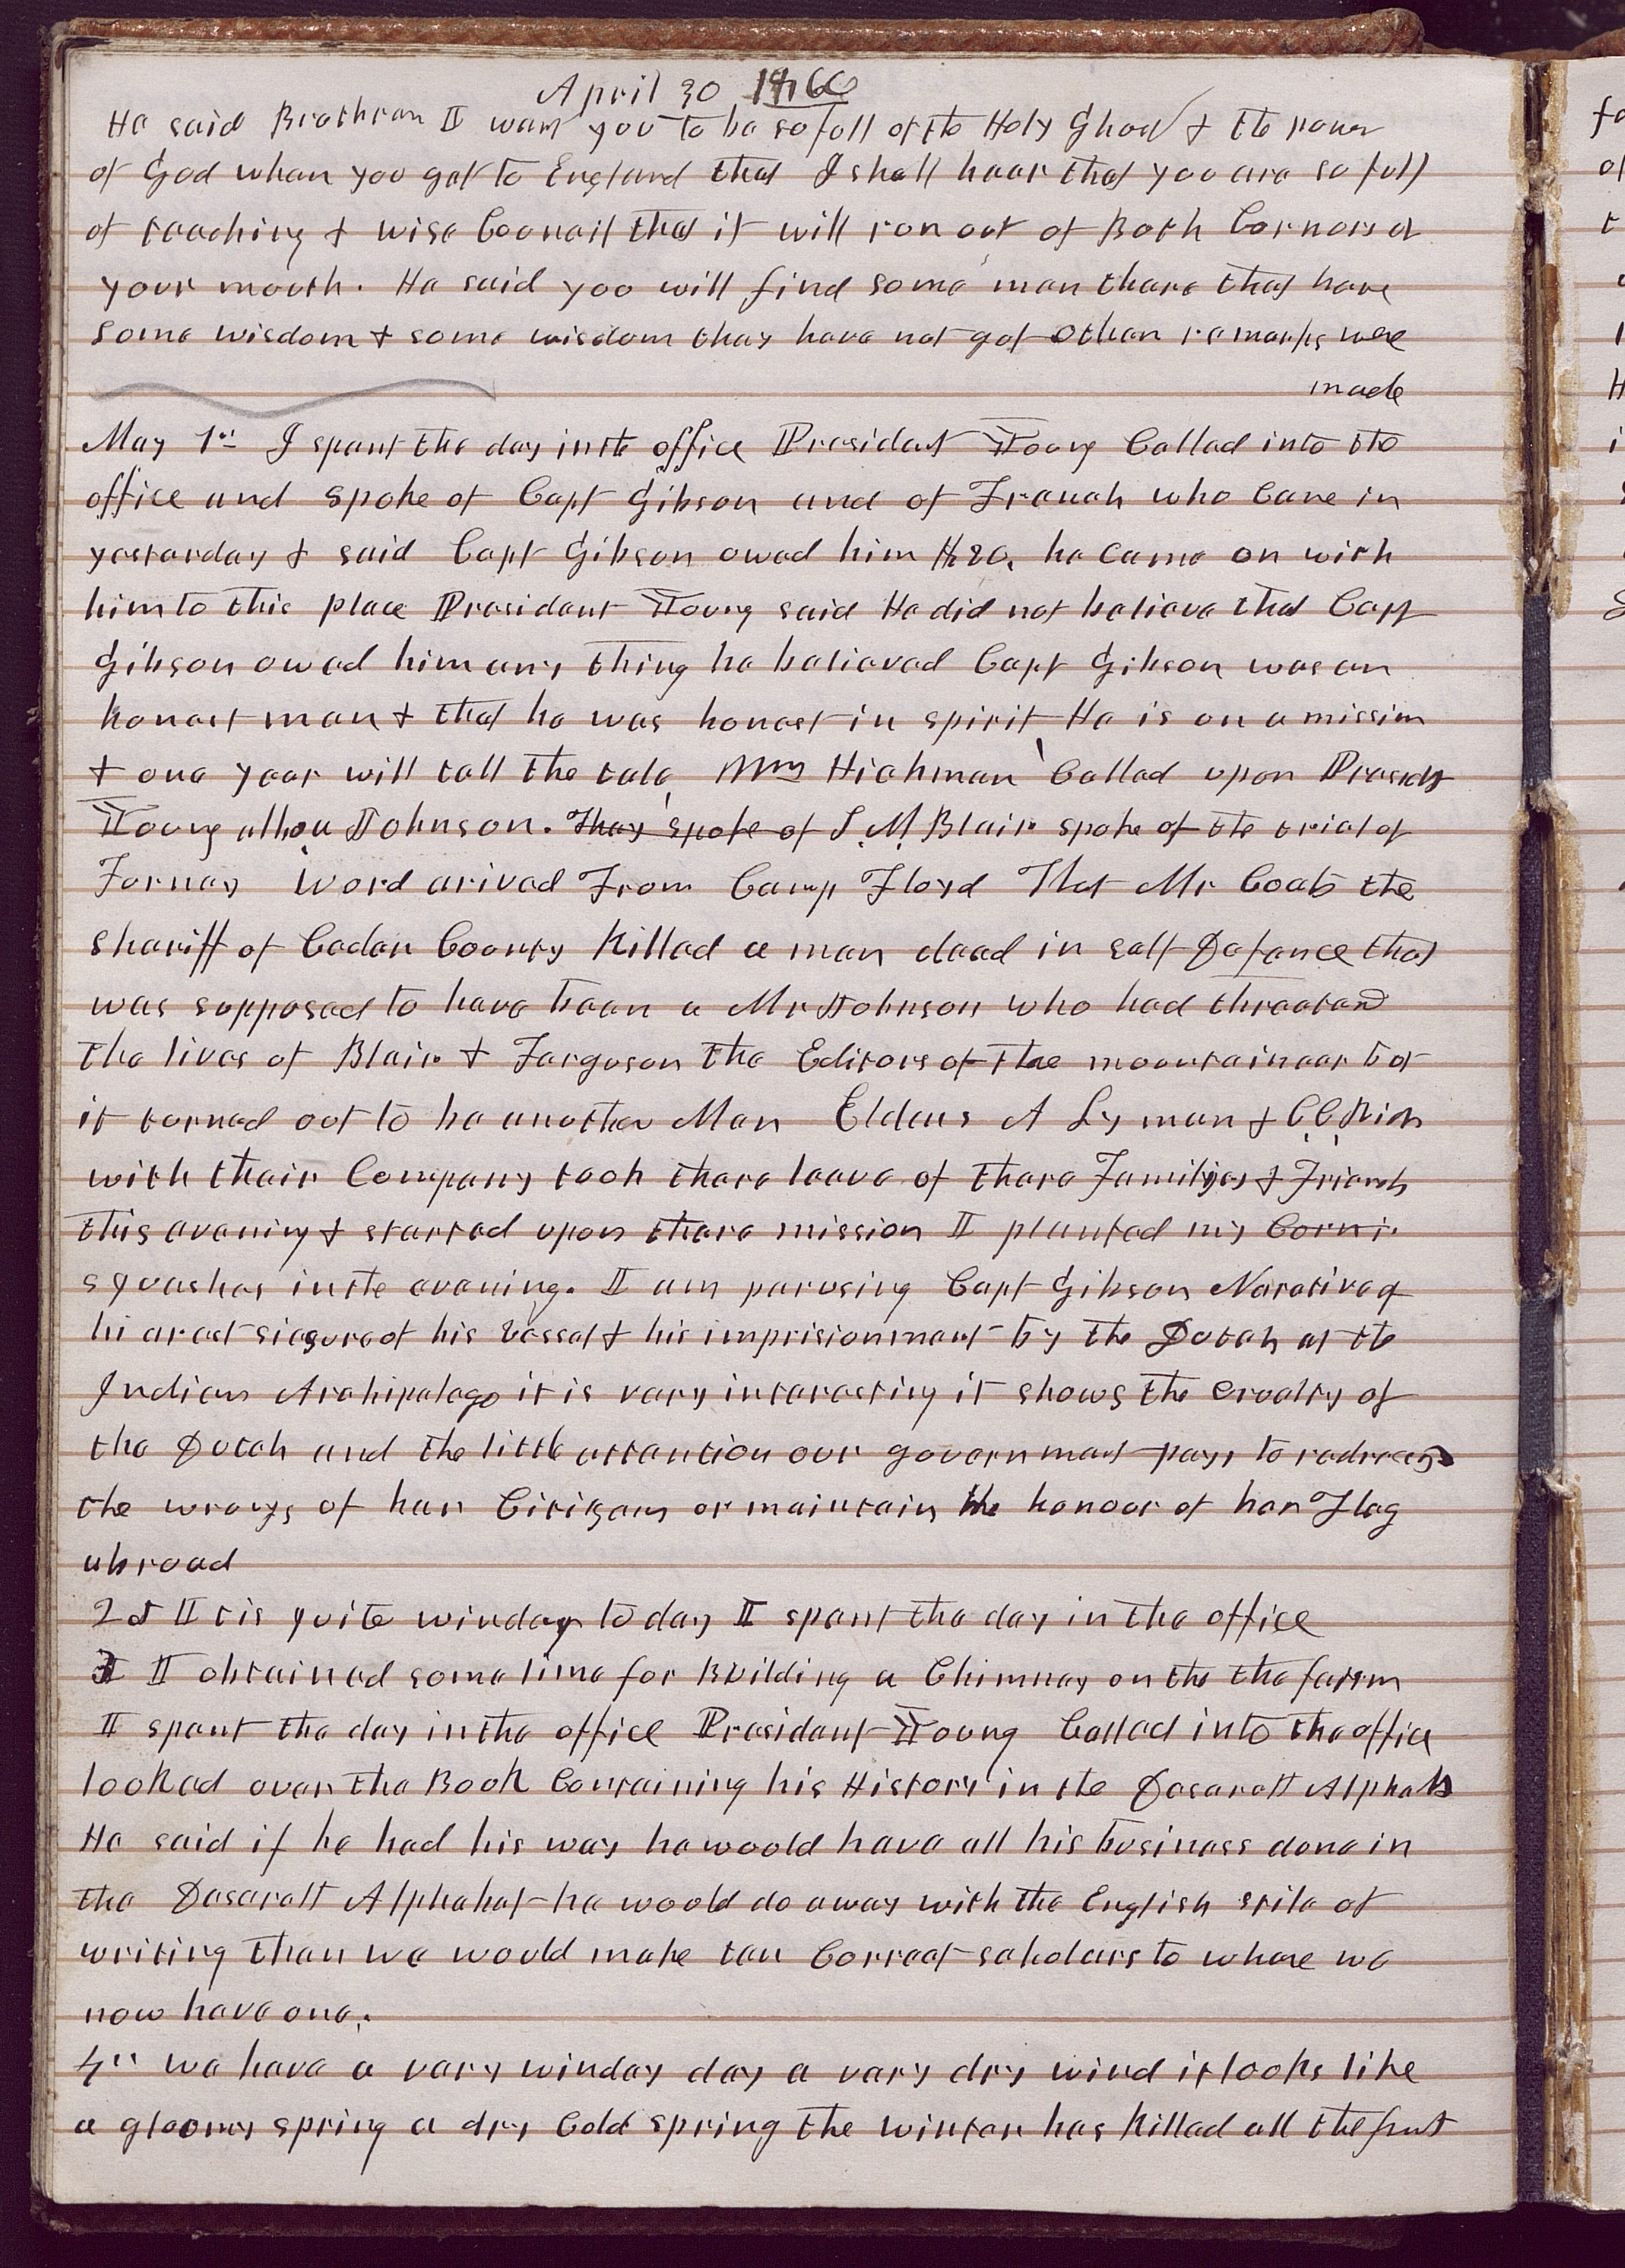 April 30 1860
He said Brethren I want you to be so full of the Holy Ghost & the power
of God when you get to England that I shall hear that you are so full
of teaching & wise Council that it will run out of Both Corners of
your mouth. He said you will find some men there that have
some wisdom & some wisdom they have not got other remarks were
made
May 1st I spent the day in the office President Young Called into the
office and spoke of Capt Gibson and of French who Came in
yesterday & said Capt Gibson owed him he Came on with
him to this place President Young said He did not believe that Capt
Gibson owed him any thing he believed Capt Gibson was an
honest man & that he was honest in spirit He is on a mission
& one year will tell the tale, Wm Hickman Called upon Presidet
Young allso Johnson. They spoke of S. M. Blair spoke of the trial of
Ferney Word arived From Camp Floyd That Mr Coats the
sheriff of Cedar County Killed a man dead in self Defence that
was supposed to have been a Mr Johnson who had threatend
the lives of Blair & Ferguson the Editors of the mountaineer but
it turned out to be another Man Elders A Lyman & C. C. Rich
with their Company took there leave of there Families & Friends
this evening & started upon there mission I planted my Corn
squashes in the evening. I am perusing Capt Gibson Narative of
hi arest siesure of his vessel & his imprisionment by the Dutch at the
Indian Archipelago it is very interesting it shows the cruelty of
the Dutch and the little attention our government pays to redress
the wrongs of her Citizens or maintain the honour of her Flag
abroad
2d It is quite winday to day I spent the day in the office
3d I obtained some lime for Building a Chimney on the the farm
I spent the day in the office President Young Called into the office
looked over the Book Containing his History in the Deserett Alphabet
He said if he had his way he would have all his business done in
the Deserett Alphabet he would do away with the English stile of
writing then we would make ten Correct scholars to where we
now have one.
4" we have a very winday day a very dry wind it looks like
a gloomy spring a dry Cold spring the winter has Killed all the frut